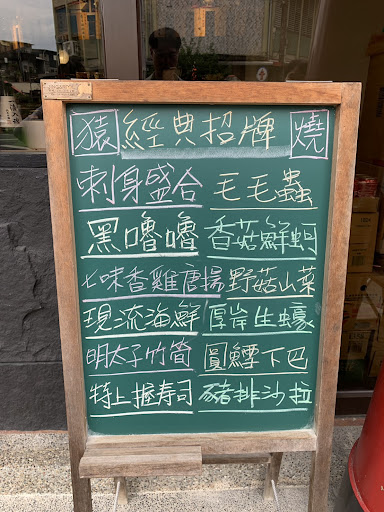 猿 經典招牌 燒
刺身盛合 毛毛蟲
黑嚕嚕 香菇鮮蚵
七味香雞唐揚 野菇山菜
現流海鮮 厚岸生蠔
明太子竹筍 圓鱈下巴
特上握寿司 豬排沙拉